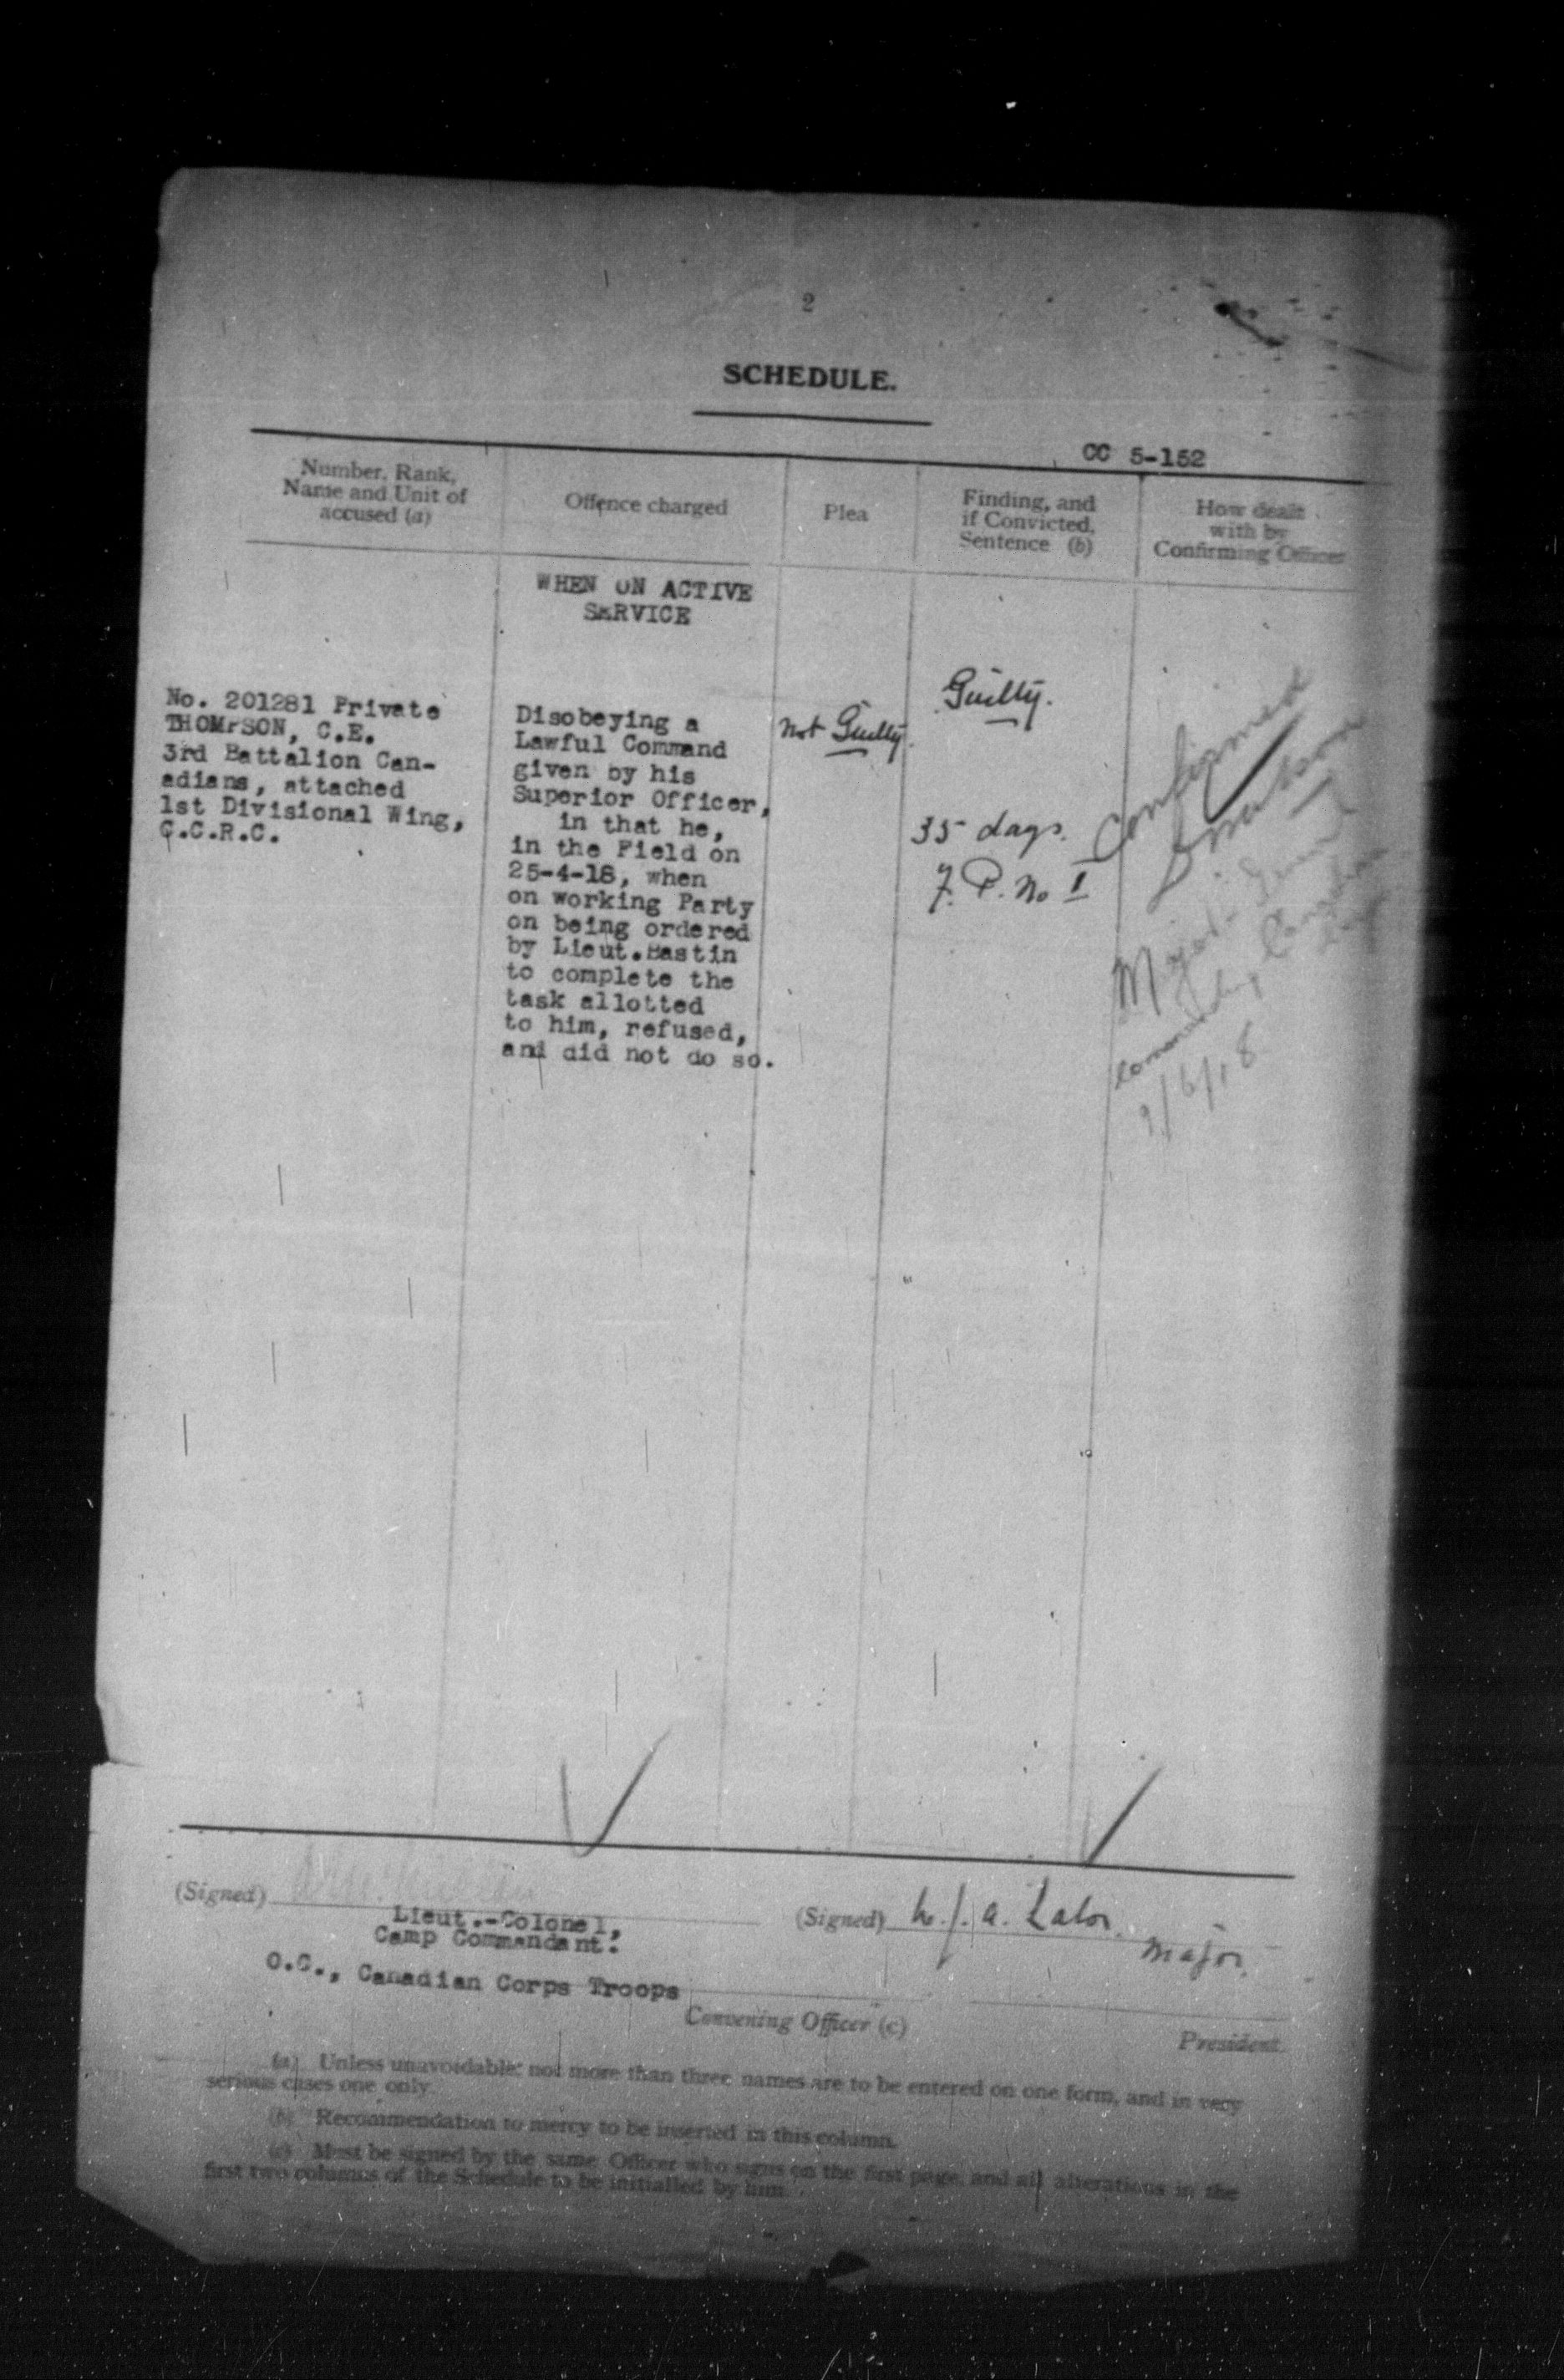 2
SCHEDULE.
CC 5-152
Number, Rank,
Name and Unit of
accused (a)
Offence charged
Plea
Finding, and
if Convicted,
Sentence (b)
How dealt
with by
Confirming Officer
WHEN ON ACTIVE
SERVICE
No. 201281 Private
THOMPSON, C.E.
3rd Battalion Can-
adians, attached
1st Divisional Wing,
C.C.R.C.
Disobeying a
Lawful Command
given by his
Superior Officer,
in that he,
in the Field on
25-4-18, when
on working Party
on being ordered
by Lieut.Bastin
to complete the
task allotted
to him, refused,
and did not do so.
Not Guilty.
Guilty.
35 days.
F.P. No 1
Confirmed
Major
Commanding
/6/18
(Signed)
Lieut.-Colonel,
Camp Commandant.
O.C., Canadian Corps Troops
Convening Officer (c)
(Signed) J. A. Labor
Major.
President
(a) Unless unavoidable not more than three names are to be entered on one form, and in very
serious cases one only.
(b) Recommendation to mercy to be inserted in this column.
(c) Must be signed by the same Officer who signs on the first page, and all alterations in the
first two columns of the Schedule to be initialled by him.